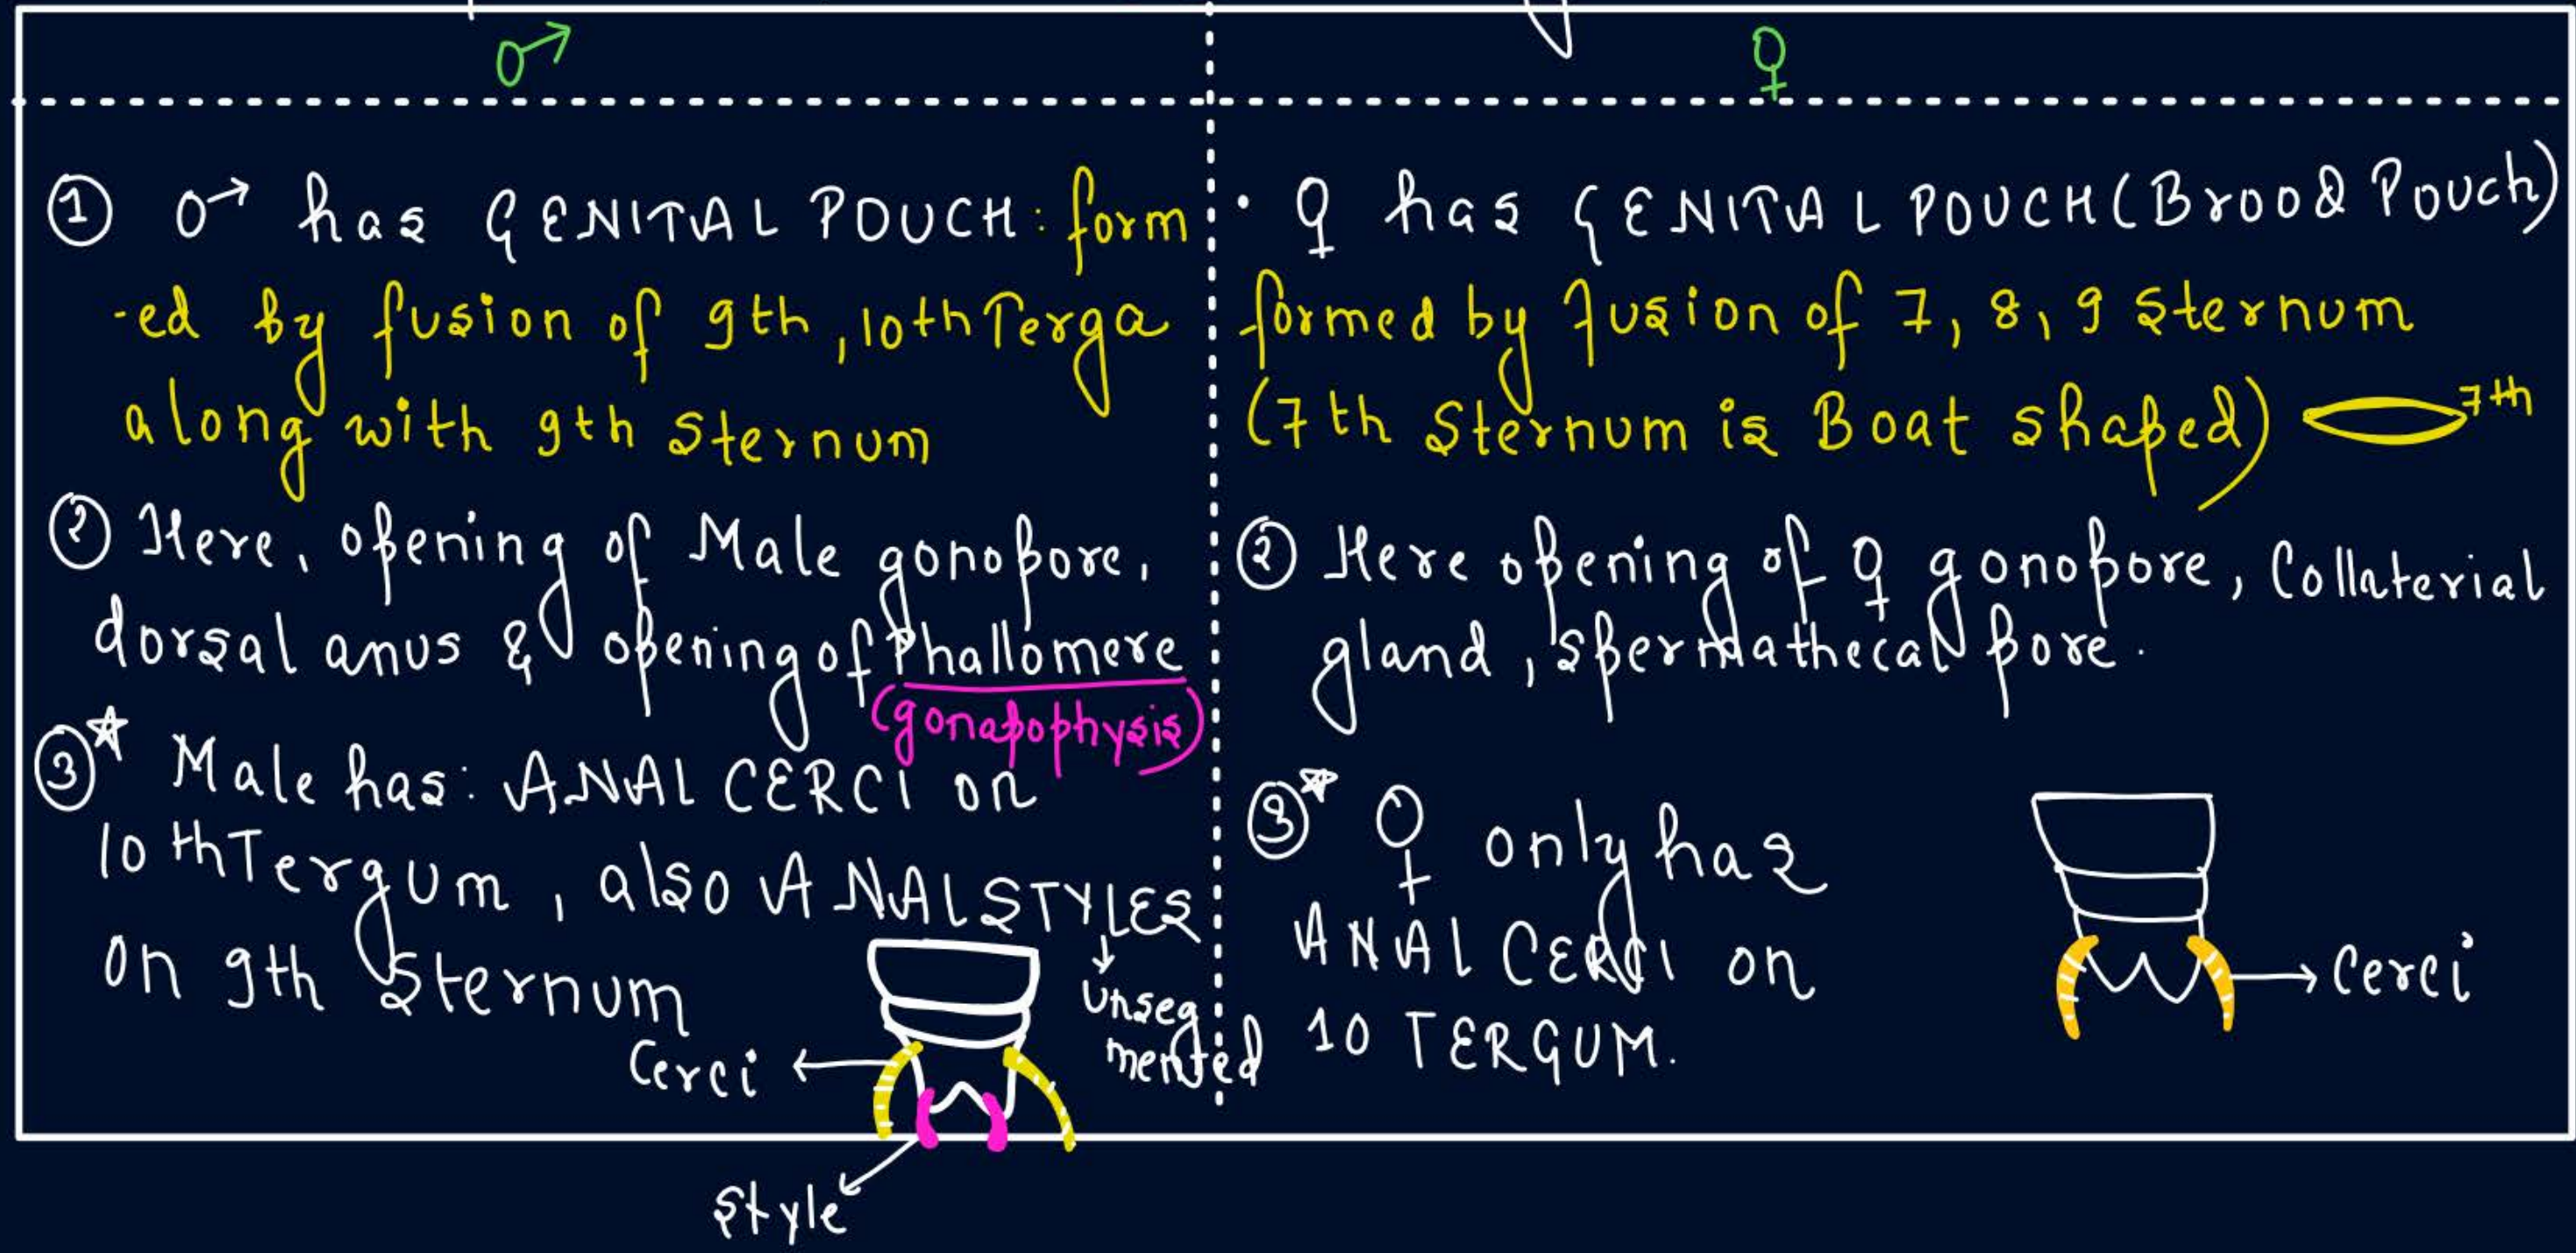 ♂
① ♂ has GENITAL POUCH: form
-ed by fusion of 9th, 10th Terga
along with 9th sternum
② Here, opening of Male gonopore,
dorsal anus & opening of Phallomere
(gonapophysis)
③* Male has: ANAL CERCI on
10th Tergum, also ANAL STYLES
on 9th Sternum
↓
Unseg
mented
Cerci
Style
♀
• ♀ has GENITAL POUCH (Brood Pouch)
formed by fusion of 7, 8, 9 sternum
(7th Sternum is Boat shaped) 7th
② Here opening of ♀ gonopore, Collaterial
gland, spermathecal pore.
③* ♀ only has
ANAL CERCI on
10 TERGUM.
Cerci